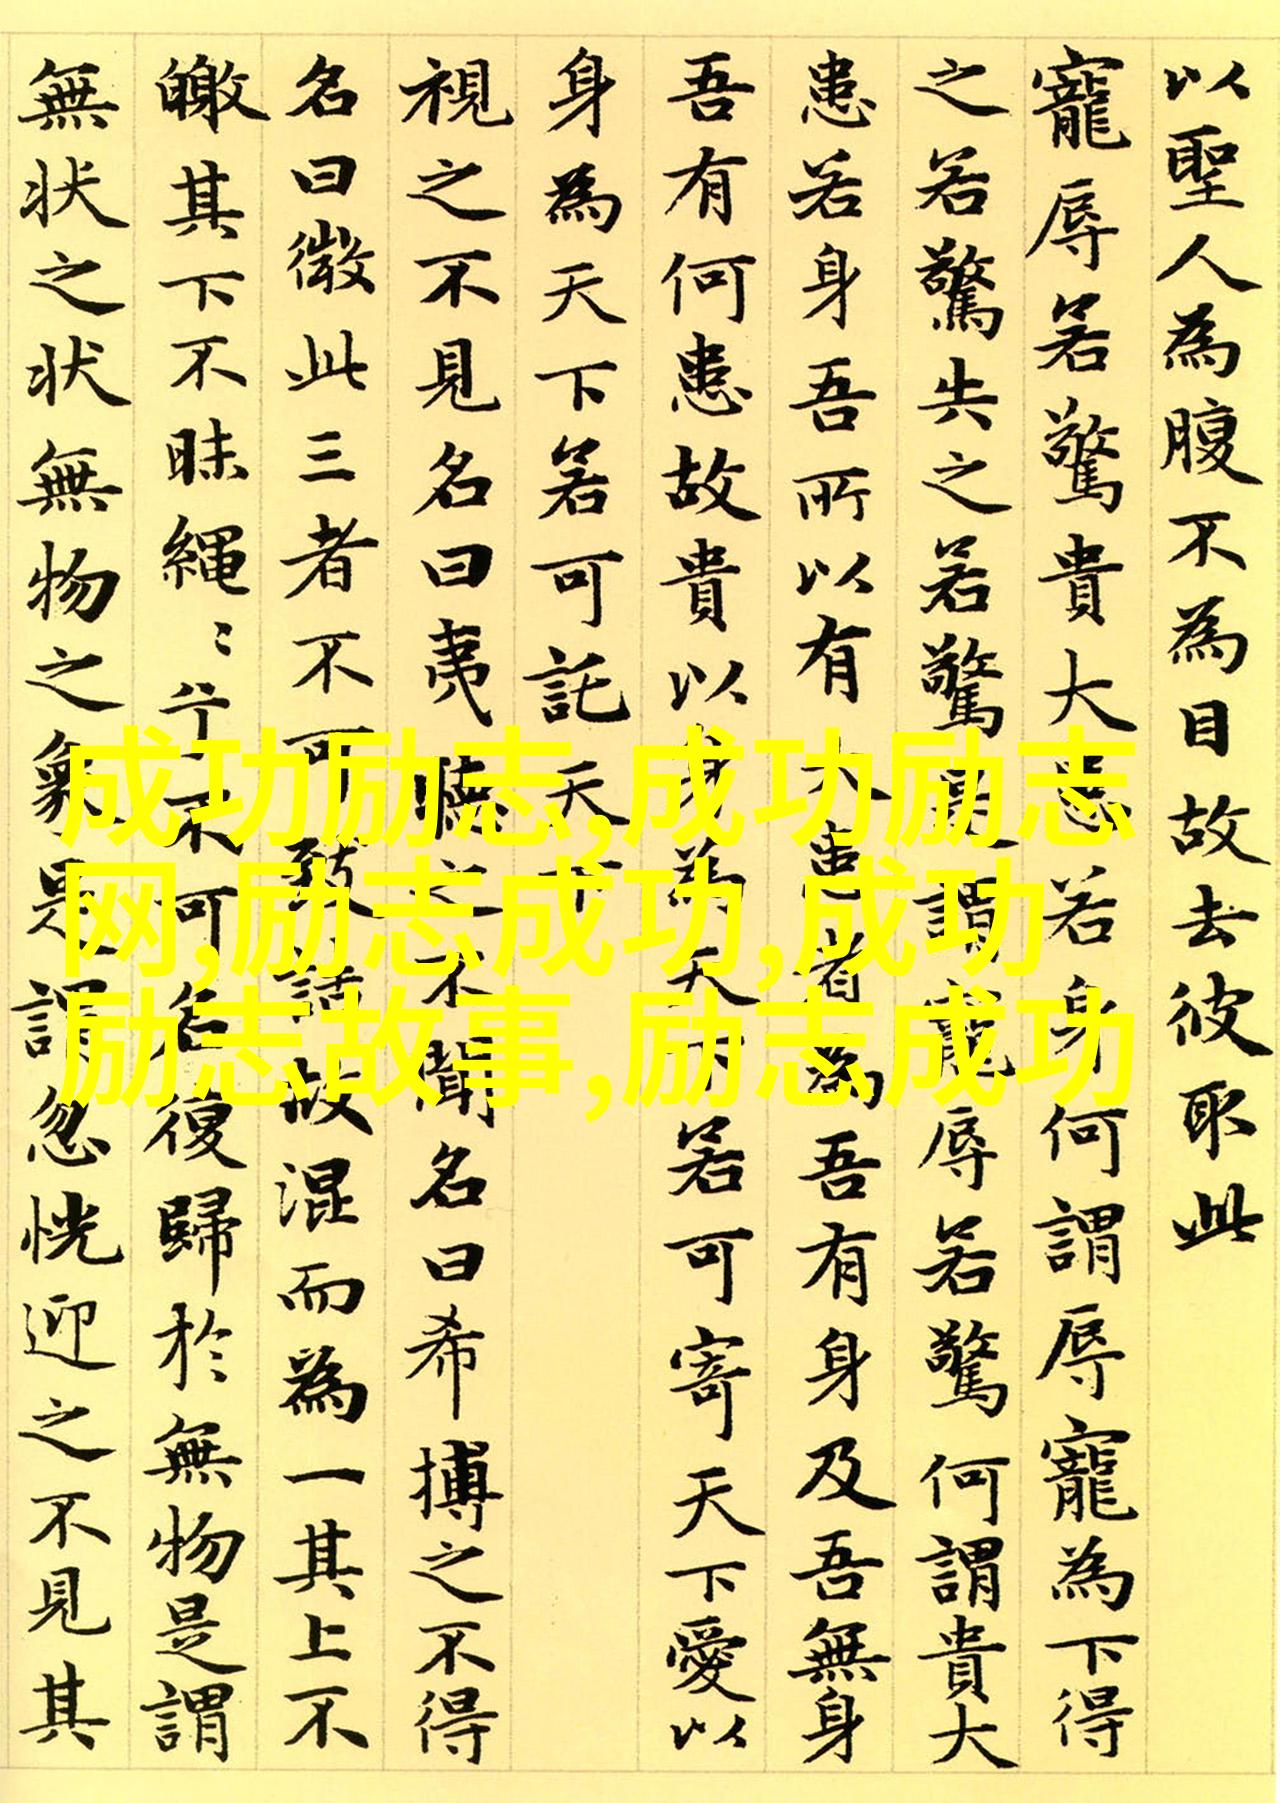 以聖人為腹不為目故去彼取此
寵辱若驚貴大患若身何謂辱寵為下得
之若驚失之若驚是謂寵辱若驚何謂貴大
患若身吾所以有大患者為吾有身及吾無身
吾有何患故貴以身為天下若可寄天下愛以
身為天下若可託天下
視之不見名曰夷聽之不聞名曰希搏之不得
名曰微此三者不可致詰故混而為一其上不
皦其下不昧繩〻兮不可名復歸於無物是謂
無状之状無物之象是謂忽恍迎之不見其
成功励志,成功励志
网,励志成功,成功
励志故事,励志成功